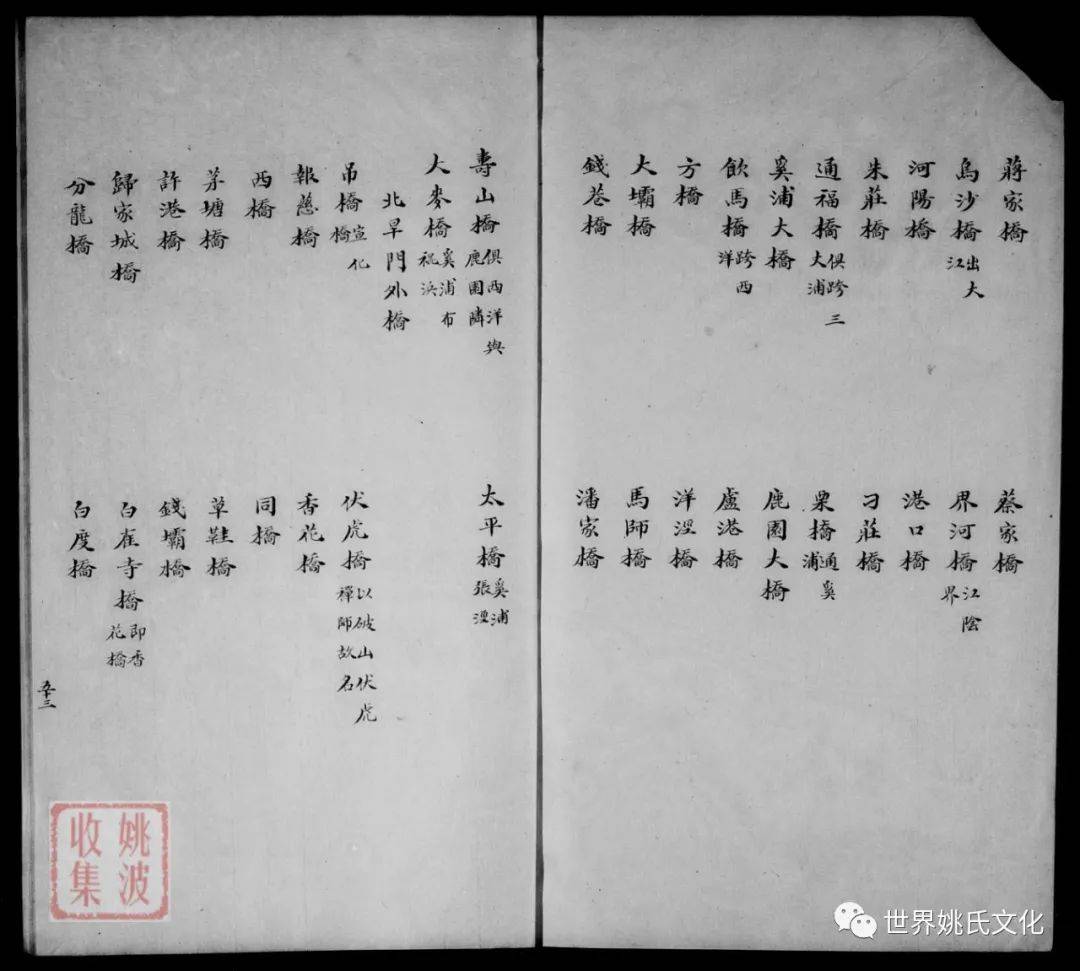 蔣家橋 蔡家橋
烏沙橋出大江 界河橋江陰界
河陽橋 港口橋
朱莊橋 刁莊橋
通福橋俱跨三大浦 栗橋通奚浦
奚浦大橋 鹿園大橋
飲馬橋跨西洋 盧港橋
方橋 洋涇橋
大壩橋 馬師橋
錢巷橋 潘家橋
壽山橋俱西洋與鹿園隣 太平橋奚浦張涇
大麥橋奚浦布祝浜
北旱門外橋
吊橋宣化橋 伏虎橋以破山伏虎禪師故名
報慈橋 香花橋
西橋 同橋
茅塘橋 草鞋橋
許港橋 錢壩橋
歸家城橋 白雀寺橋即香花橋
分龍橋 白度橋
五十三
姚波收集
世界姚氏文化